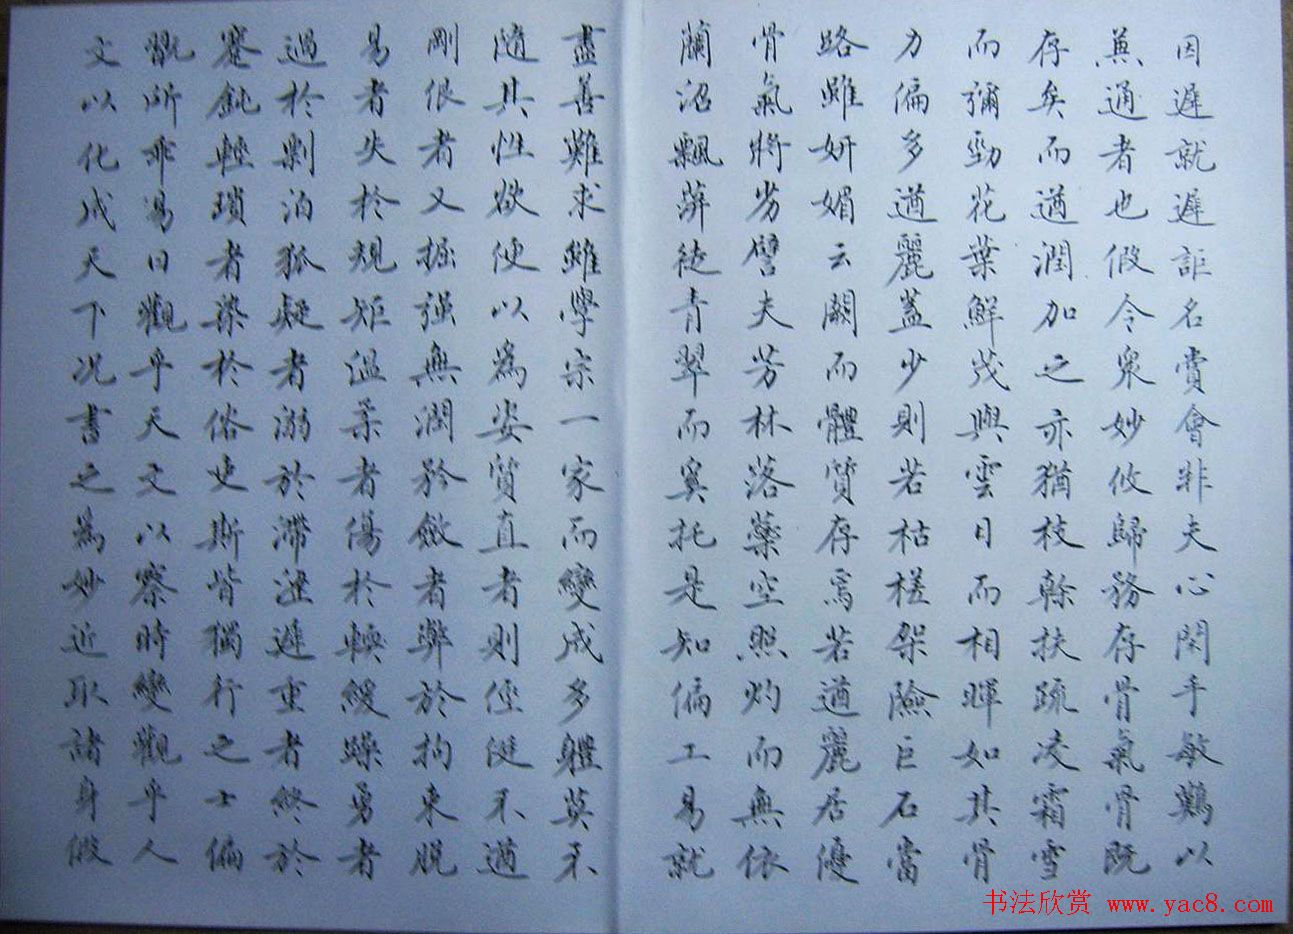 因遲就遲詎名賞會非夫心閑手敏難以
兼通者也假令衆妙攸歸務存骨氣骨既
存矣而遒潤加之亦猶枝幹扶疏凌霜雪
而彌勁花葉鮮茂與雲日而相暉如其骨
力偏多遒麗蓋少則若枯槎架險巨石當
路雖妍媚云闕而體質存焉若遒麗居優
骨氣將劣譬夫芳林落蘂空照灼而無依
蘭沼飄蓱徒青翠而奚托是知偏工易就
盡善難求雖學宗一家而變成多體莫不
隨其性欲便以為姿質直者則俓侹不遒
剛佷者又掘強無潤矜斂者弊於拘束脫
易者失於規矩溫柔者傷於軟緩躁勇者
過於剽泊狐疑者溺於滯澁遲重者終於
蹇鈍輕瑣者染於俗吏斯皆獨行之士偏
翫所乖易曰觀乎天文以察時變觀乎人
文以化成天下況書之為妙近取諸身假
书法欣赏 www.yac8.com